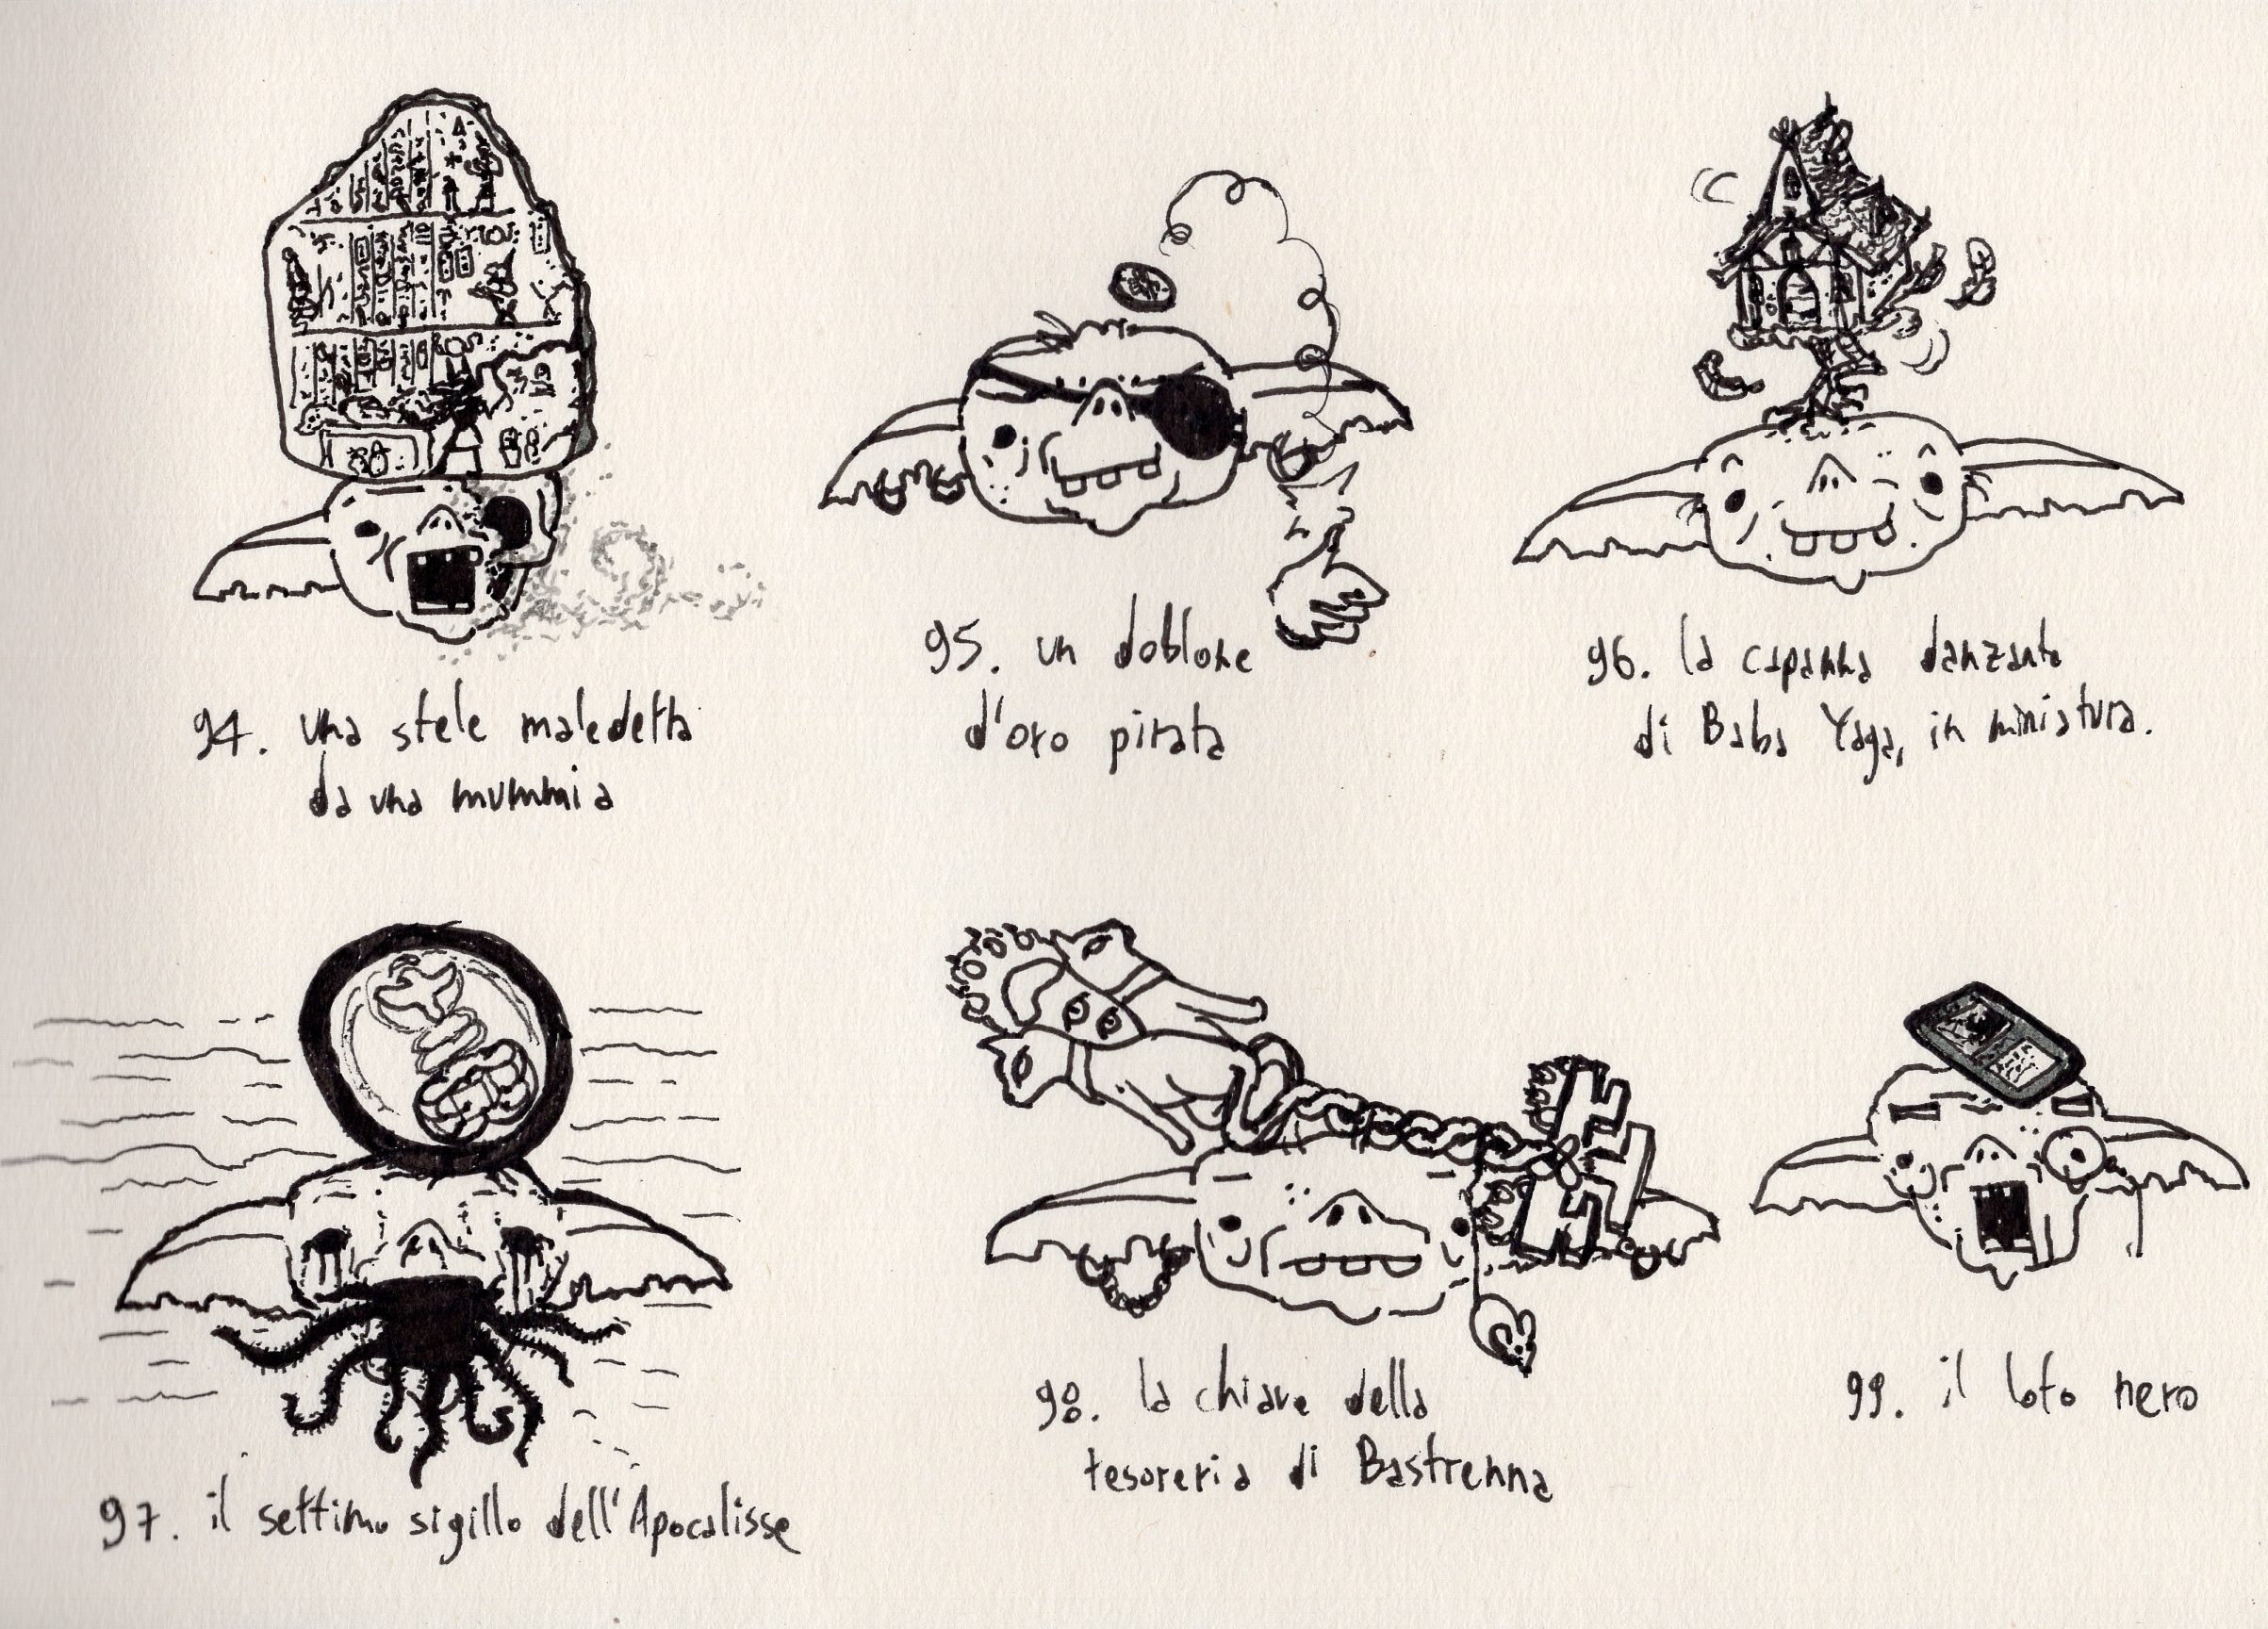 94. una stele maledetta
da una mummia
95. un doblone
d'oro pirata
96. la capanna danzante
di Baba Yaga, in miniatura.
97. il settimo sigillo dell'Apocalisse
98. la chiave della
tesoreria di Bastrenna
99. il loto nero